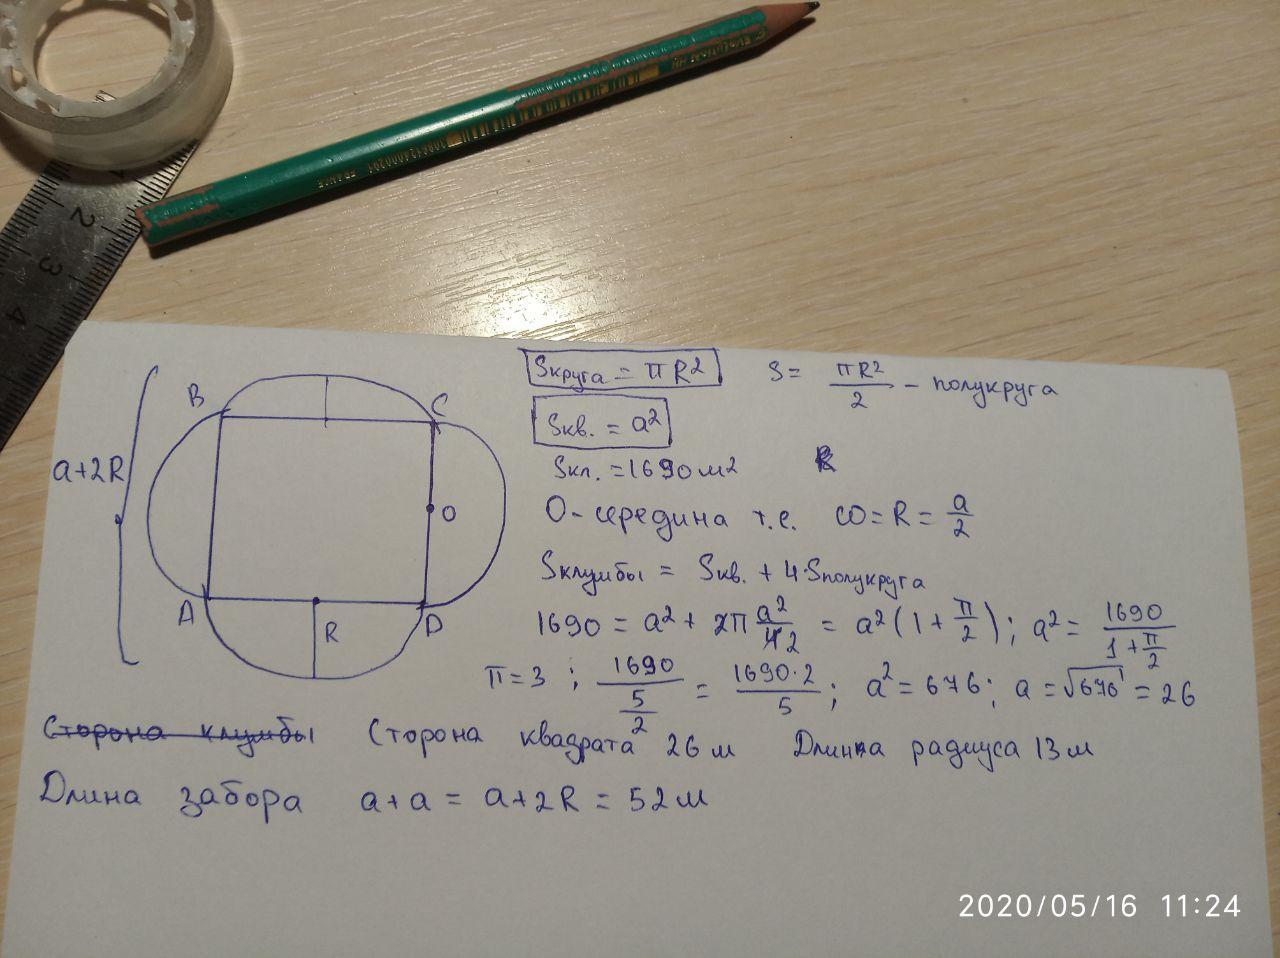 EVOLUTION HB
3086124000291 FRANCE
2
3
4
Sкруга = πR²
S = πR²/2 - полукруга
Sкв. = a²
B
C
a+2R
Sкл. = 1690 м²
O
O - середина т.е. CO = R = a/2
Sклумбы = Sкв. + 4·Sполукруга
A
R
D
1690 = a² + 2π a²/4 2 = a²(1 + π/2); a² = 1690/(1 + π/2)
π = 3 ; 1690/(5/2) = 1690·2/5 ; a² = 676 ; a = √676 = 26
Сторона клумбы Сторона квадрата 26 м Длинна радиуса 13 м
Длина забора a+a = a+2R = 52 м
2020/05/16 11:24